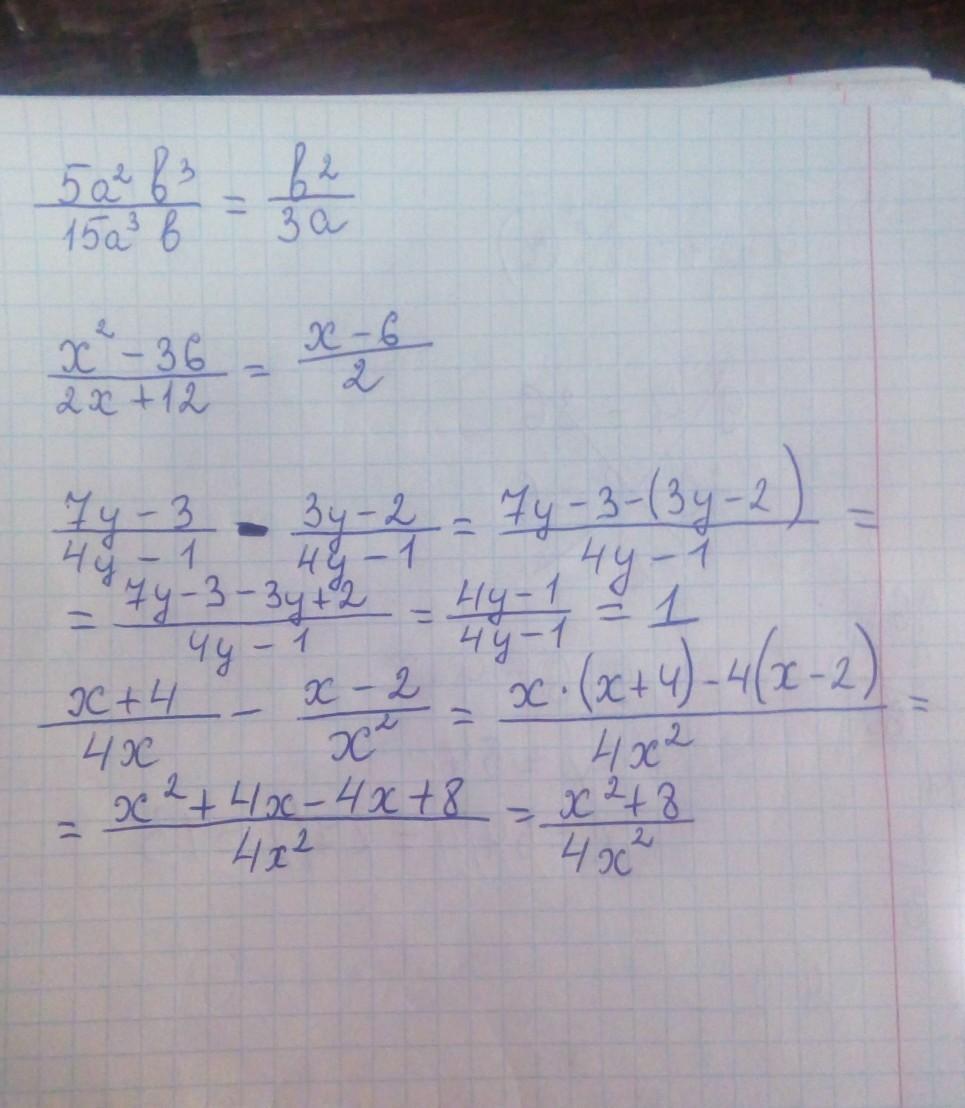 5a² b³ / 15a³ b = b² / 3a
x² - 36 / 2x + 12 = x - 6 / 2
7y - 3 / 4y - 1 - 3y - 2 / 4y - 1 = 7y - 3 - (3y - 2) / 4y - 1 =
= 7y - 3 - 3y + 2 / 4y - 1 = 4y - 1 / 4y - 1 = 1
x + 4 / 4x - x - 2 / x² = x · (x + 4) - 4(x - 2) / 4x² =
= x² + 4x - 4x + 8 / 4x² = x² + 8 / 4x²